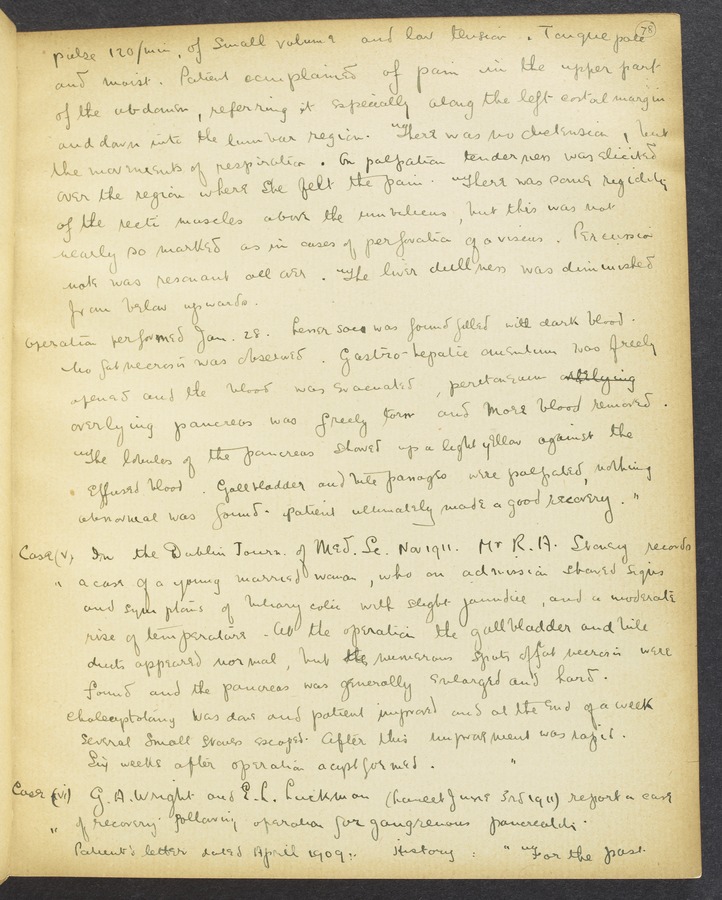 78
pulse 120/min, of small volume and low tension. Tongue pale
and moist. Patient complained of pain in the upper part
of the abdomen, referring it especially along the left costal margin
and down into the lumbar region. There was no distension, but
the movements of respiration. On palpation tenderness was elicited
over the region where she felt the pain. There was some rigidity
of the recti muscles above the umbilicus, but this was not
nearly so marked as in cases of perforation of a viscus. Percussion
note was resonant all over. The liver dullness was diminished
from below upwards.
Operation performed Jan. 28. Lesser sac was found filled with dark blood.
No fat necrosis was observed. Gastro-hepatic omentum was freely
opened and the blood was evacuated, peritoneum
overlying pancreas was freely torn and more blood removed.
The lobules of the pancreas showed up a light yellow against the
effused blood. Gallbladder and bile passages were palpated, nothing
abnormal was found. Patient ultimately made a good recovery."
Case (V) In the Dublin Journ. of Med. Sc. Nov 1911. Mr R. A. Stoney records
" a case of a young married woman, who on admission showed signs
and symptoms of biliary colic with slight jaundice, and a moderate
rise of temperature. At the operation the gallbladder and bile
ducts appeared normal, but numerous spots of fat necrosis were
found and the pancreas was generally enlarged and hard.
Cholecystotomy was done and patient improved and at the end of a week
several small stones escaped. After this improvement was rapid.
Six weeks after operation a cyst formed. "
Case (VI) G. A. Wright and E. L. Luckman (Lancet June 3rd 1911) report a case
" of recovery following operation for gangrenous pancreatitis.
Patient's letter dated April 1909: History: " For the past